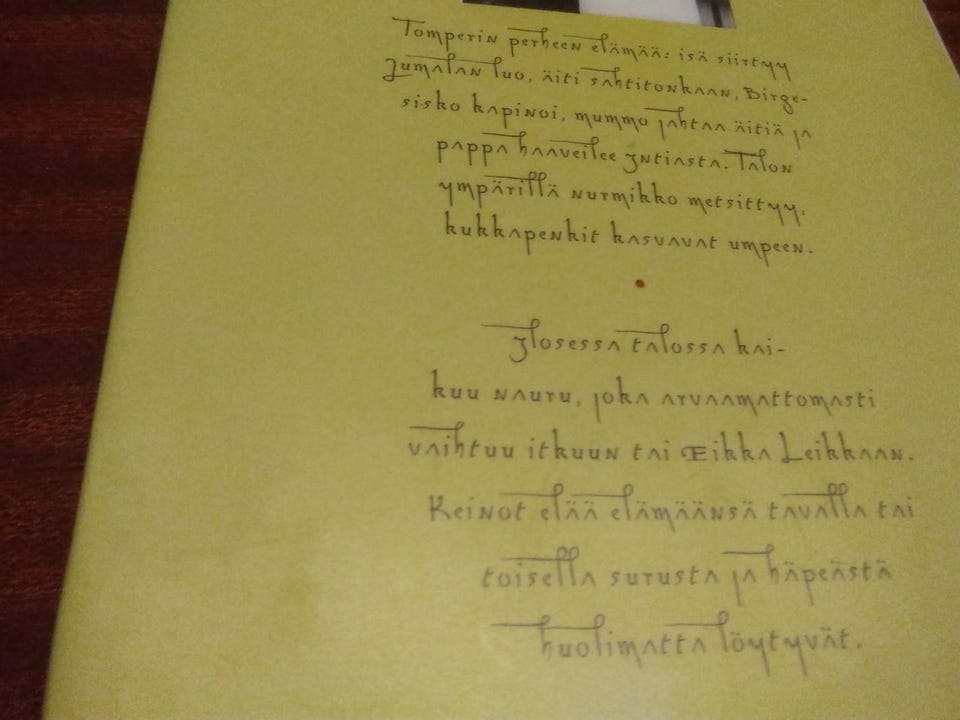 Tomperin perheen elämää: isä siirtyy
Jumalan luo, äiti sahtitonkaan, Birge-
sisko kapinoi, mummo jahtaa äitiä ja
pappa haaveilee Intiasta. Talon
ympärillä nurmikko metsittyy,
kukkapenkit kasvavat umpeen.
Ilosessa talossa kai-
kuu nauru, joka arvaamattomasti
vaihtuu itkuun tai Eikka Leikkaan.
Keinot elää elämäänsä tavalla tai
toisella surusta ja häpeästä
huolimatta löytyvät.